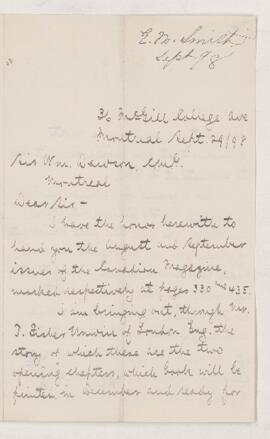 E. M. Smith
Sept 98
36 McGill College Ave
Montreal Sept. 29/98
Sir Wm. Dawson, C.M.G.
Montreal
Dear Sir-
I have the honor herewith to
hand you the August and September
issues of the Canadian Magazine,
marked respectively at pages 330 and 435.
I am bringing out, through Mr.
T. Fisher Unwin of London Eng. the
story, of which these are the two
opening chapters, which book will be
printed in December and ready for